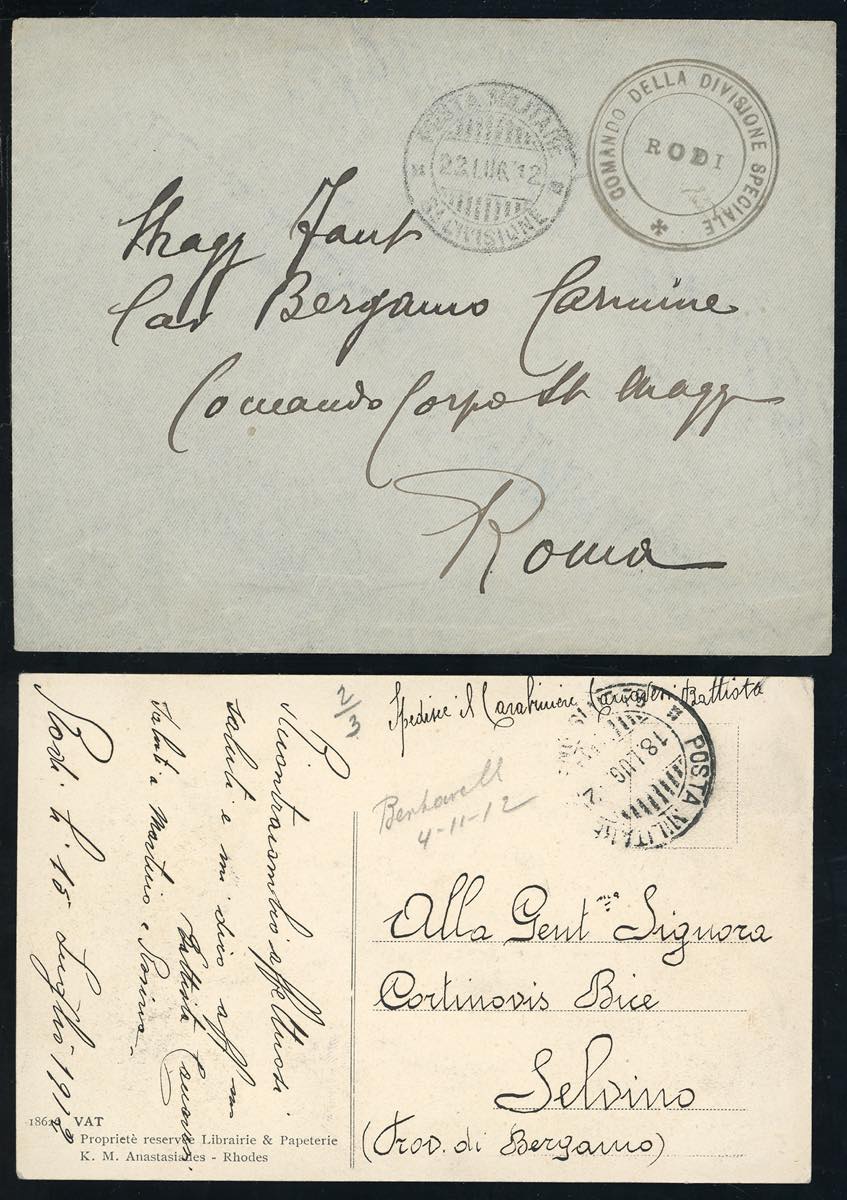 POSTA MILITARE
22 LUG 12
DIVISIONE
COMANDO DELLA DIVISIONE SPECIALE
RODI
Magg
Cav Bergamo Carmine
Comando Corpo St Magg
Roma
Spedisce il Carabiniere Battista
POSTA MILITARE
18 LUG 12
2/3
4-11-12
Alla Gent.ma Signora
Cortinovis Bice
Selvino
(Prov. di Bergamo)
Ricontracambio affettuosi
saluti e mi dico aff.mo
Battista
Saluti a Martino e
Rodi li 15 Luglio 1912
VAT
Propriete reservée Librairie & Papeterie
K. M. Anastasiades - Rhodes